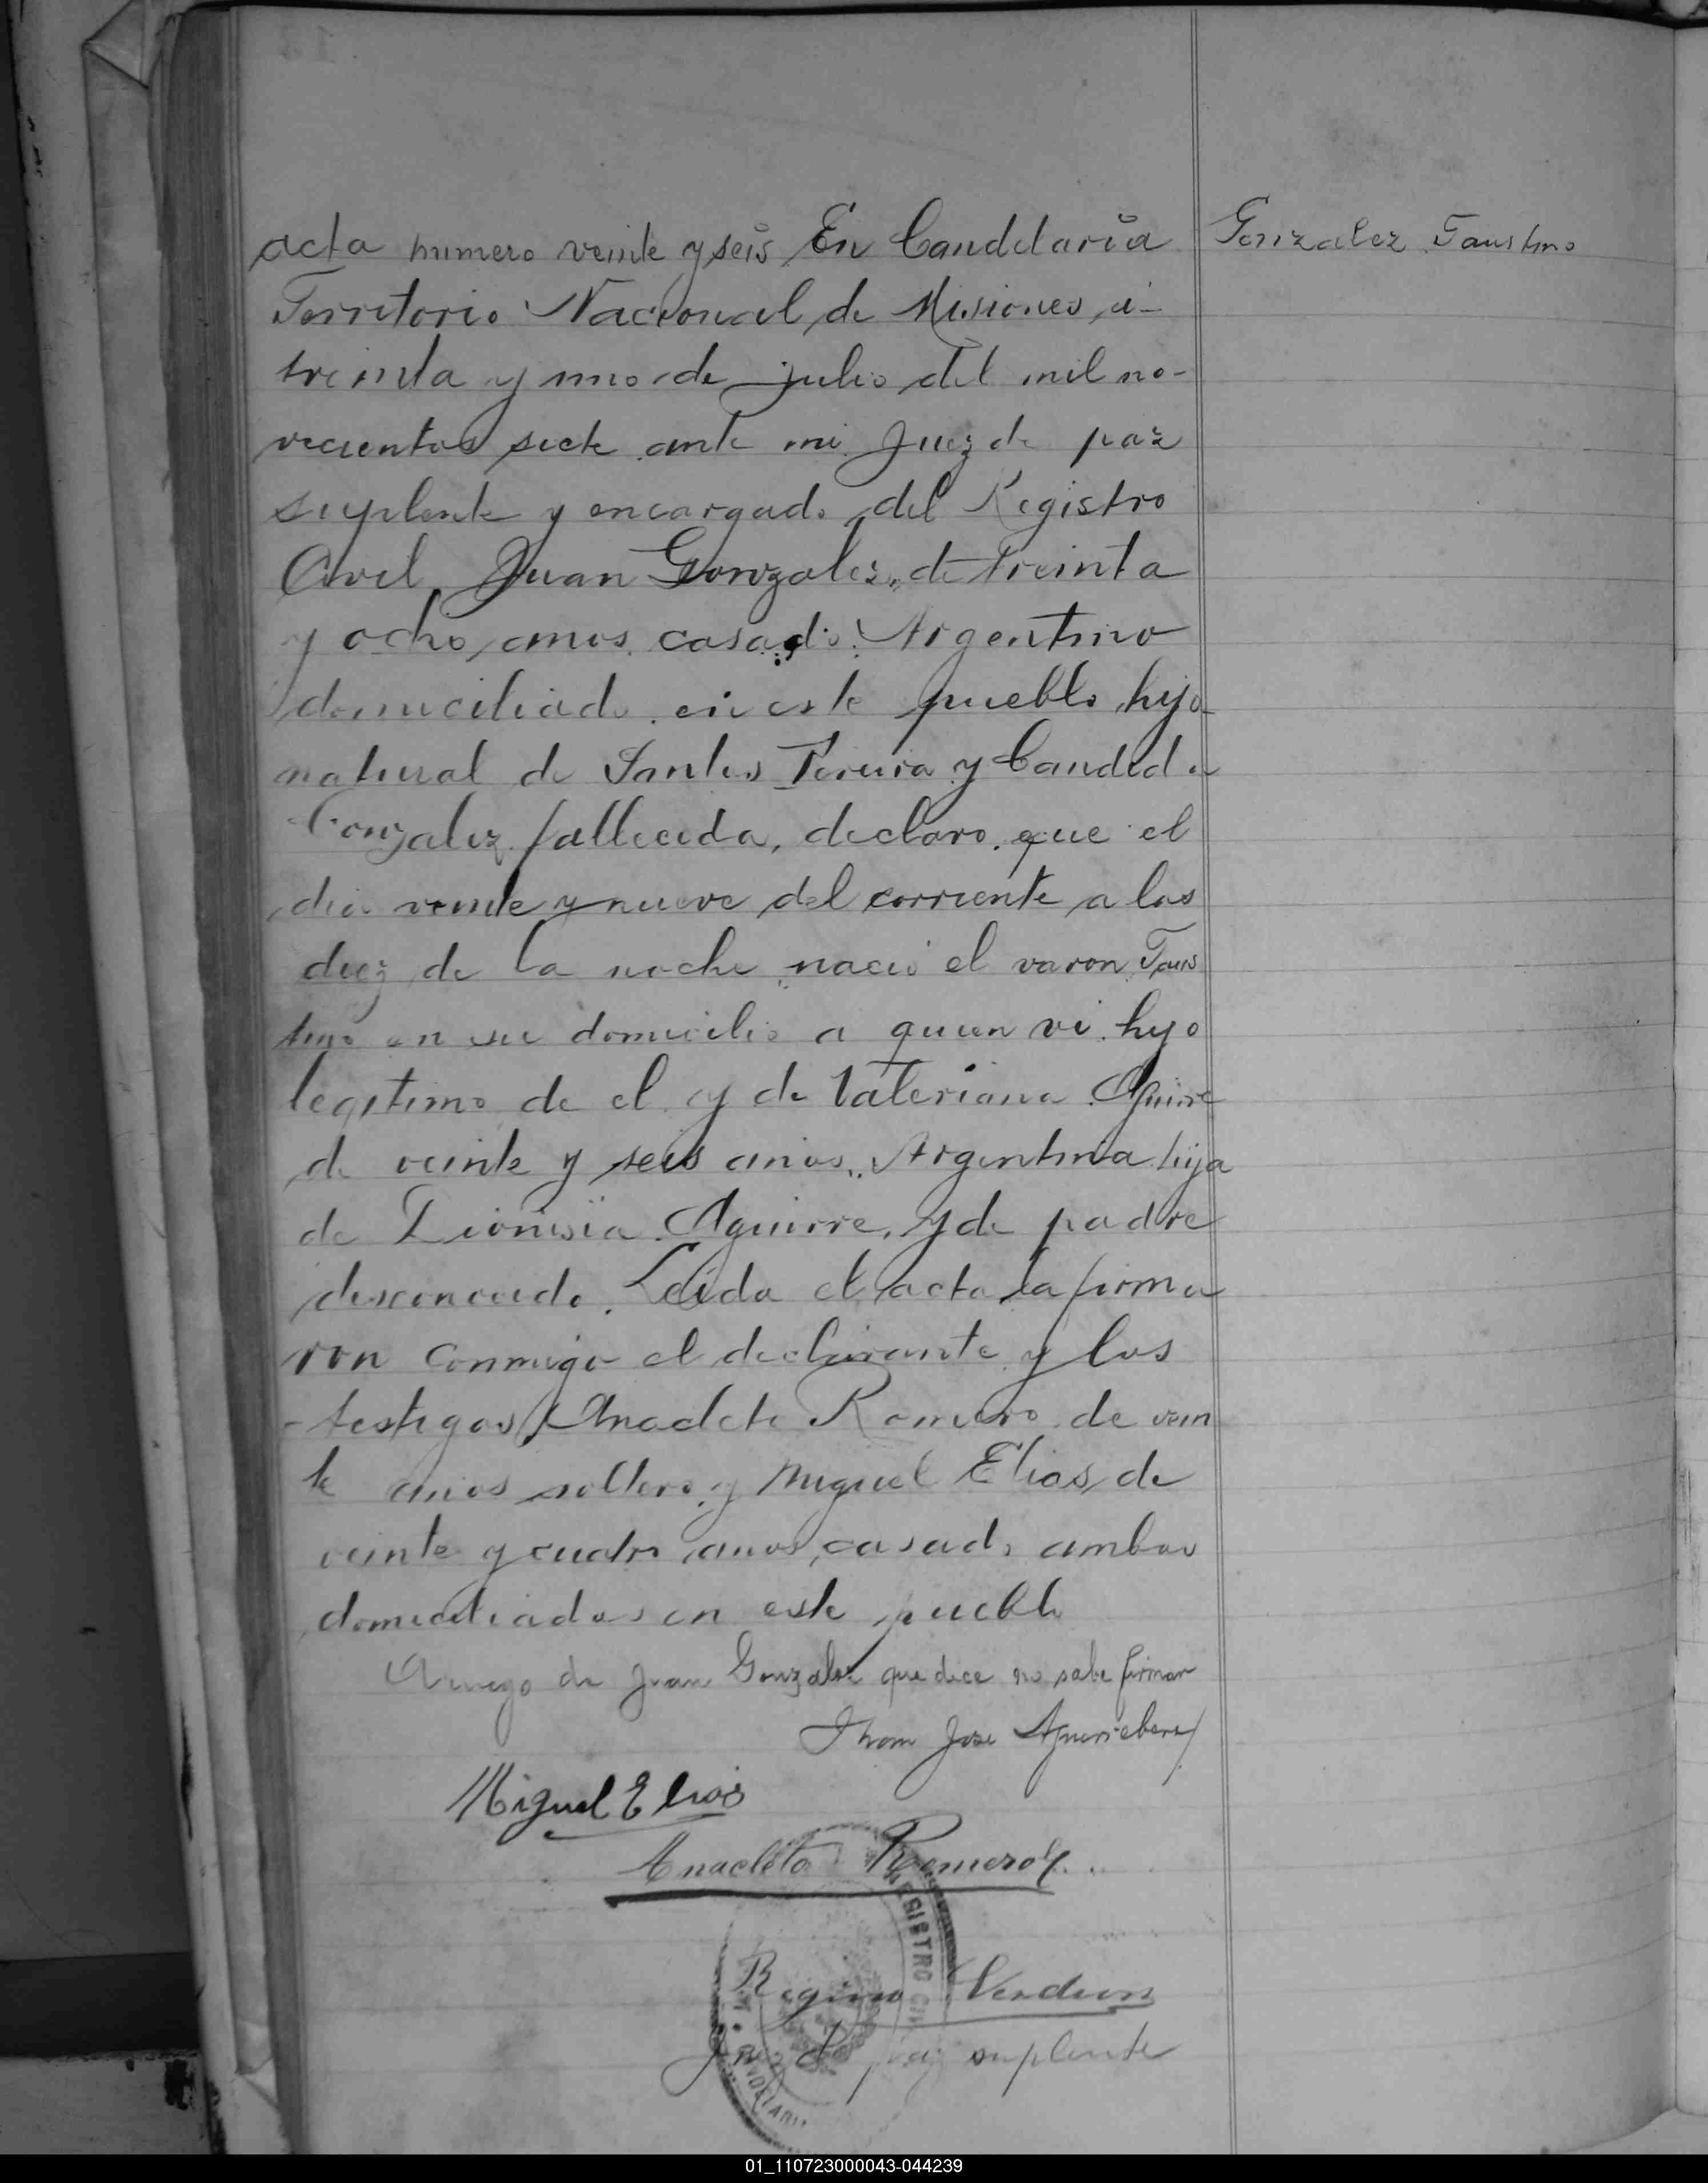 acta numero veinte y seis En Candelaria
Gonzalez Faustino
Territorio Nacional de Misiones, á
treinta y uno de julio del mil no-
vecientos siete ante mi Juez de paz
suplente y encargado del Registro
Civil, Juan Gonzalez, de treinta
y ocho años, casado. Argentino
domiciliado en este pueblo, hijo
natural de Santos Pereira y Candida
Gonzalez fallecida, declaro que el
dia veinte y nueve del corriente a las
diez de la noche nació el varon Faus
tino en su domicilio a quien vi hijo
legitimo de el y de Valeriana Aguirre
de veinte y seis años, Argentina hija
de Dionisia Aguirre, y de padre
desconocido. Leida el acta la firma
ron conmigo el declarante y los
testigos Anacleto Romero de vein
te años soltero y Miguel Elias, de
veinte y cuatro años, casado ambos
domiciliados en este pueblo
A ruego de Juan Gonzalez que dice no sabe firmar
Jose
Miguel Elias
Anacleto Romero
REGISTRO CIVIL
Regino
Juez de paz suplente
01_110723000043-044239